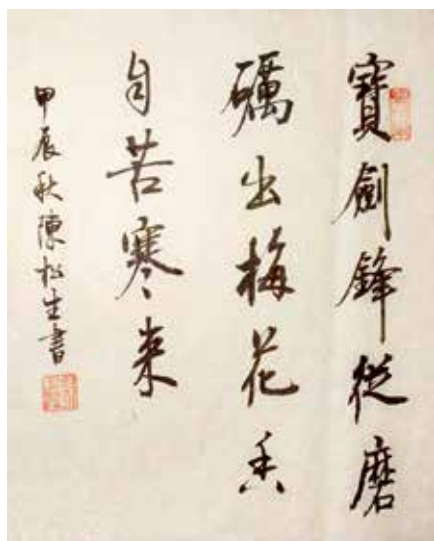 寶劍鋒從磨
礪出梅花香
自苦寒来
甲辰秋陳松生書